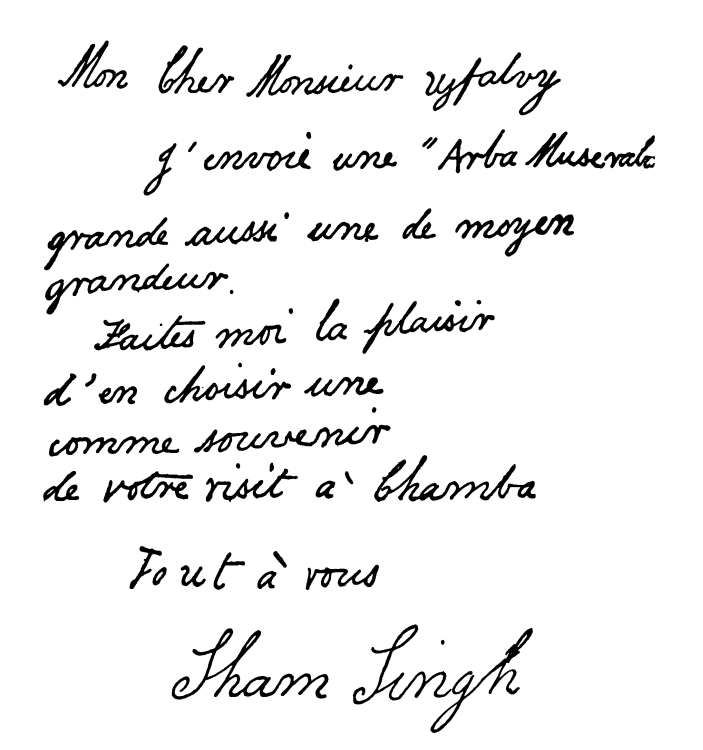 Mon Cher Monsieur Ujfalvy
J'envoie une "Arba Museralc
grande aussi une de moyen
grandeur.
Faites moi la plaisir
d'en choisir une
comme souvenir
de votre visit à Chamba
Tout à vous
Sham Singh